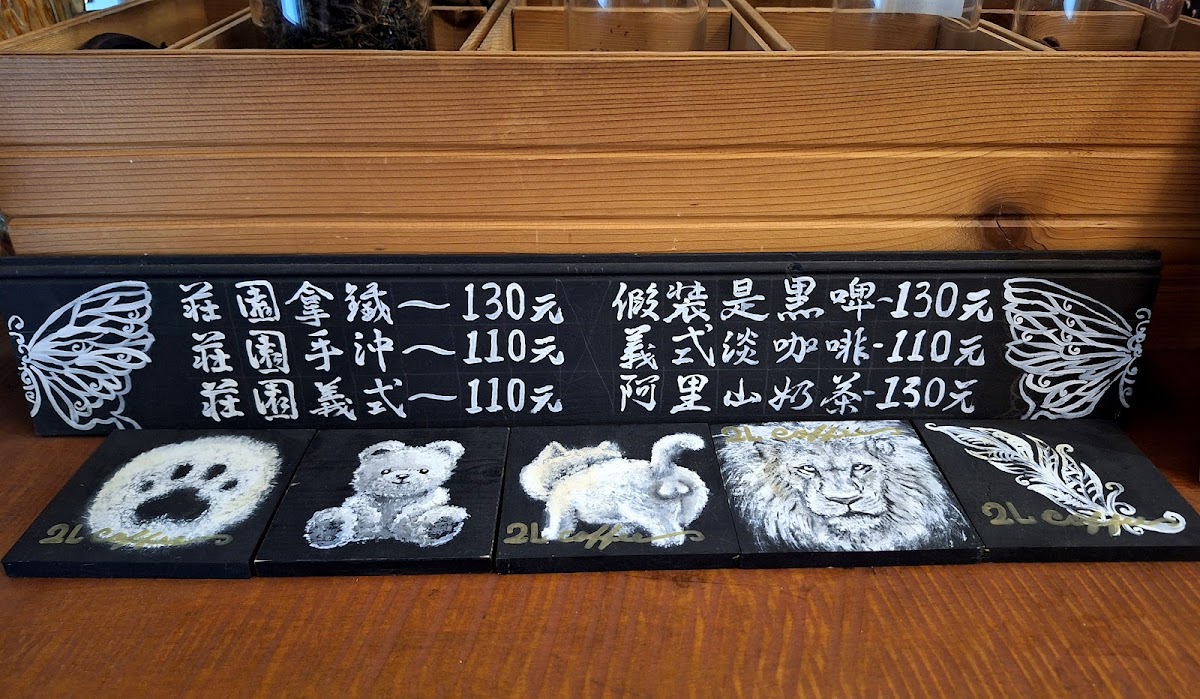 莊園拿鐵～130元
莊園手沖～110元
莊園義式～110元
假裝是黑啤-130元
義式淡咖啡-110元
阿里山奶茶-130元
2L coffee
2L coffee
2L coffee
2L coffee